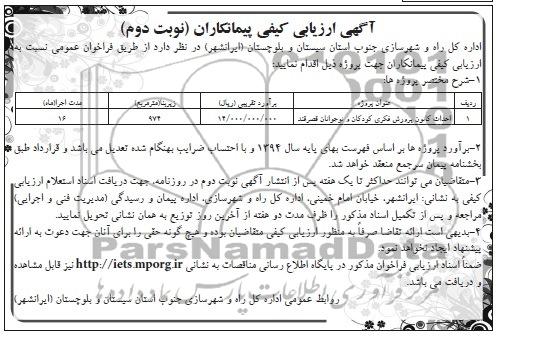 آگهی ارزیابی کیفی پیمانکاران (نوبت دوم)
اداره کل راه و شهرسازی جنوب استان سیستان و بلوچستان (ایرانشهر) در نظر دارد از طریق فراخوان عمومی نسبت به
ارزیابی کیفی پیمانکاران جهت پروژه ذیل اقدام نمایند:
۱-شرح مختصر پروژه ها:
ردیف عنوان پروژه برآورد تقریبی (ریال) زیربنا(مترمربع) مدت اجرا(ماه)
۱ احداث کانون پرورش فکری کودکان و نوجوانان قصرقند ۱۴/۰۰۰/۰۰۰/۰۰۰ ۹۷۴ ۱۶
۲-برآورد پروژه ها بر اساس فهرست بهای پایه سال ۱۳۹۴ و با احتساب ضرایب بهنگام شده تعدیل می باشد و قرارداد طبق
بخشنامه پیمان سرجمع منعقد خواهد شد.
۳-متقاضیان می توانند حداکثر تا یک هفته پس از انتشار آگهی نوبت دوم در روزنامه، جهت دریافت اسناد استعلام ارزیابی
کیفی به نشانی: ایرانشهر، خیابان امام خمینی، اداره کل راه و شهرسازی، اداره پیمان و رسیدگی (مدیریت فنی و اجرایی)
مراجعه و پس از تکمیل اسناد مذکور را ظرف مدت دو هفته از آخرین روز توزیع به همان نشانی تحویل نمایید.
۴-بدیهی است ارائه تقاضا صرفاً به منظور ارزیابی کیفی متقاضیان بوده و هیچ گونه حقی را برای آنان جهت دعوت به ارائه
پیشنهاد ایجاد نخواهد نمود.
ضمناً اسناد ارزیابی فراخوان مذکور در پایگاه اطلاع رسانی مناقصات به نشانی http://iets.mporg.ir نیز قابل مشاهده
و دریافت می باشد.
روابط عمومی اداره کل راه و شهرسازی جنوب استان سیستان و بلوچستان (ایرانشهر)
ParsNamadData